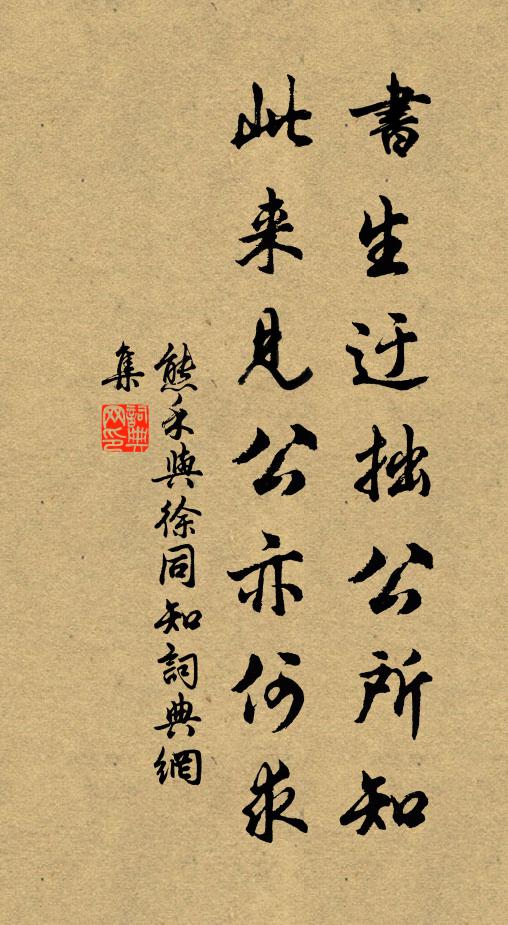 書生迂拙公所知
此来見公亦何求
熊禾與徐同知詞典網
集
詞典网印